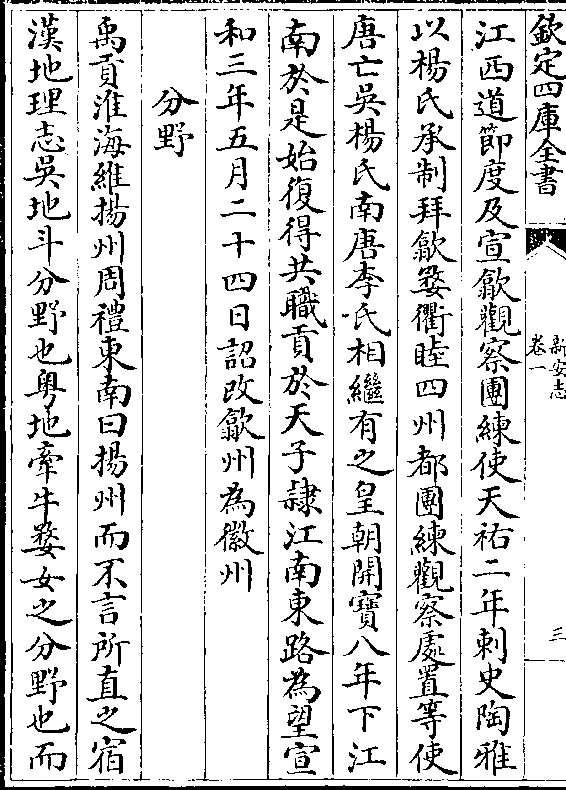 欽定四庫全書
新安志
卷一
三
江西道節度及宣歙觀察團練使天祐二年刺史陶雅
以楊氏承制拜歙婺衢睦四州都團練觀察處置等使
唐亡吳楊氏南唐李氏相繼有之皇朝開寶八年下江
南於是始復得共職貢於天子隸江南東路為望宣
和三年五月二十四日詔改歙州為徽州
分野
禹貢淮海維揚州周禮東南曰揚州而不言所直之宿
漢地理志吳地斗分野也粤地牽牛婺女之分野也而